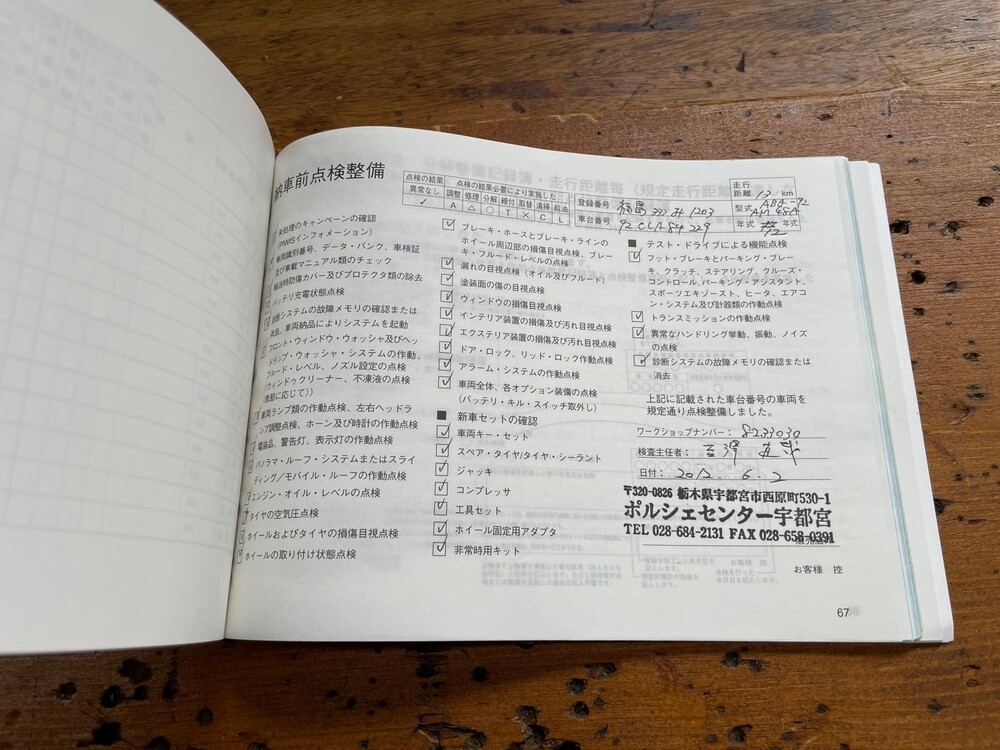 納車前点検整備
点検の結果 点検の結果必要により実施した
異常なし 調整 修理 分解 締付 取替 清掃 給油
✓ A △ ○ T × C L
登録番号
車台番号
走行距離 13 km
型式
年式 年式
未処理のキャンペーンの確認
(PIWISインフォメーション)
車両識別番号、データ・バンク、車検証
及び車載マニュアル類のチェック
輸送時防傷カバー及びプロテクタ類の除去
バッテリ充電状態点検
診断システムの故障メモリの確認または
消去、車両納品によりシステムを起動
フロント・ウィンドウ・ウォッシャ及びヘッ
ドランプ・ウォッシャ・システムの作動、
フルード・レベル、ノズル設定の点検
(ウィンドゥクリーナー、不凍液の点検
(季節に応じて))
車両ランプ類の作動点検、左右ヘッドラ
ンプ調整点検、ホーン及び時計の作動点検
電装品、警告灯、表示灯の作動点検
パノラマ・ルーフ・システムまたはスライ
ディング/モバイル・ルーフの作動点検
エンジン・オイル・レベルの点検
タイヤの空気圧点検
ホイールおよびタイヤの損傷目視点検
ホイールの取り付け状態点検
ブレーキ・ホースとブレーキ・ラインの
ホイール周辺部の損傷目視点検、ブレー
キ・フルード・レベルの点検
漏れの目視点検(オイル及びフルード)
塗装面の傷の目視点検
ウィンドウの損傷目視点検
インテリア装置の損傷及び汚れ目視点検
エクステリア装置の損傷及び汚れ目視点検
ドア・ロック、リッド・ロック作動点検
アラーム・システムの作動点検
車両全体、各オプション装備の点検
(バッテリ・キル・スイッチ取外し)
■ 新車セットの確認
車両キー・セット
スペア・タイヤ/タイヤ・シーラント
ジャッキ
コンプレッサ
工具セット
ホイール固定用アダプタ
非常時用キット
■ テスト・ドライブによる機能点検
フット・ブレーキとパーキング・ブレー
キ、クラッチ、ステアリング、クルーズ・
コントロール、パーキング・アシスタント、
スポーツエキゾースト、ヒータ、エアコ
ン・システム及び計器類の作動点検
トランスミッションの作動点検
異常なハンドリング挙動、振動、ノイズ
の点検
診断システムの故障メモリの確認または
消去
上記に記載された車台番号の車両を
規定通り点検整備しました。
ワークショップナンバー: 8233030
検査主任者:
日付: 2012. 6. 2
〒320-0826 栃木県宇都宮市西原町530-1
ポルシェセンター宇都宮
TEL 028-684-2131 FAX 028-658-0391
お客様 控
67